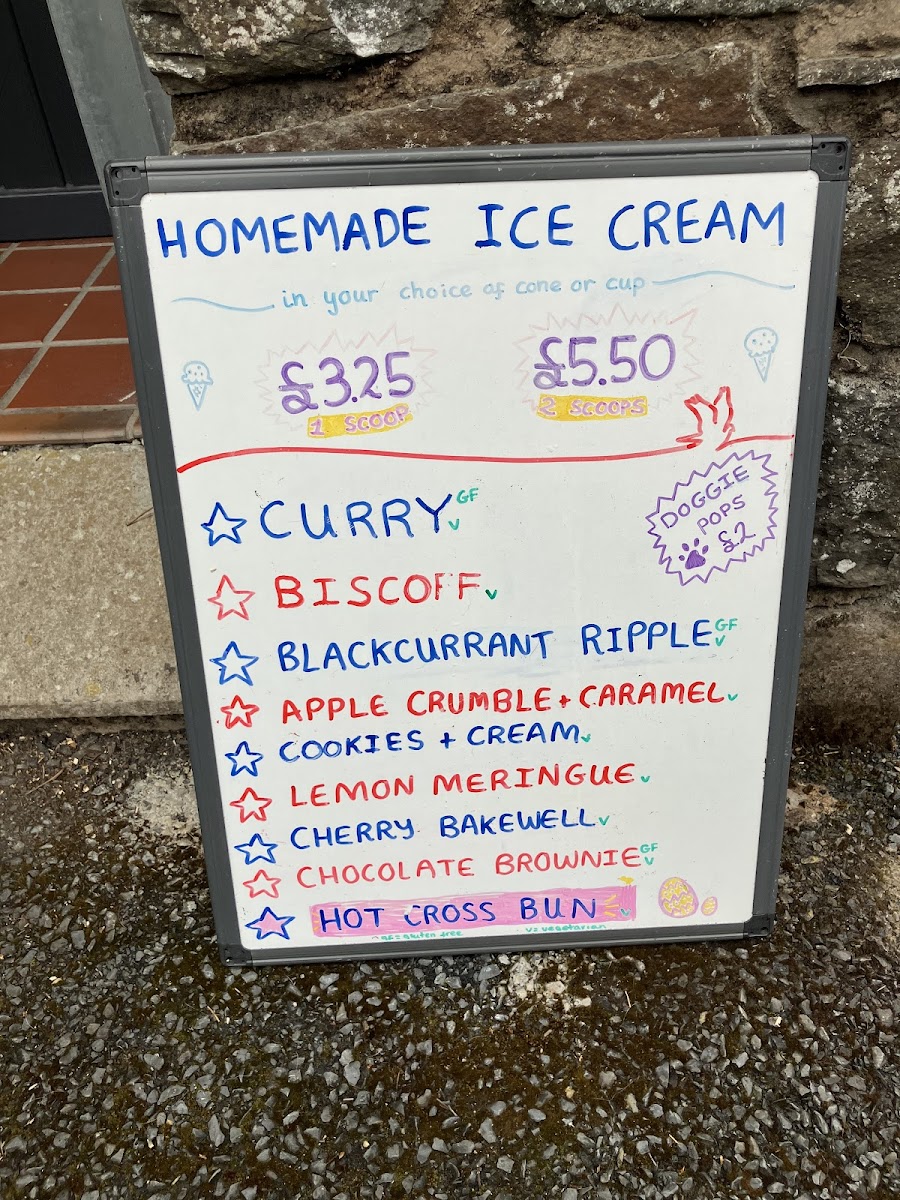 HOMEMADE ICE CREAM
in your choice of cone or cup
£3.25
1 SCOOP
£5.50
2 SCOOPS
DOGGIE
POPS
£2
CURRY GF V
BISCOFF V
BLACKCURRANT RIPPLE GF V
APPLE CRUMBLE + CARAMEL V
COOKIES + CREAM V
LEMON MERINGUE V
CHERRY BAKEWELL V
CHOCOLATE BROWNIE GF V
HOT CROSS BUN V
GF = gluten free V = vegetarian